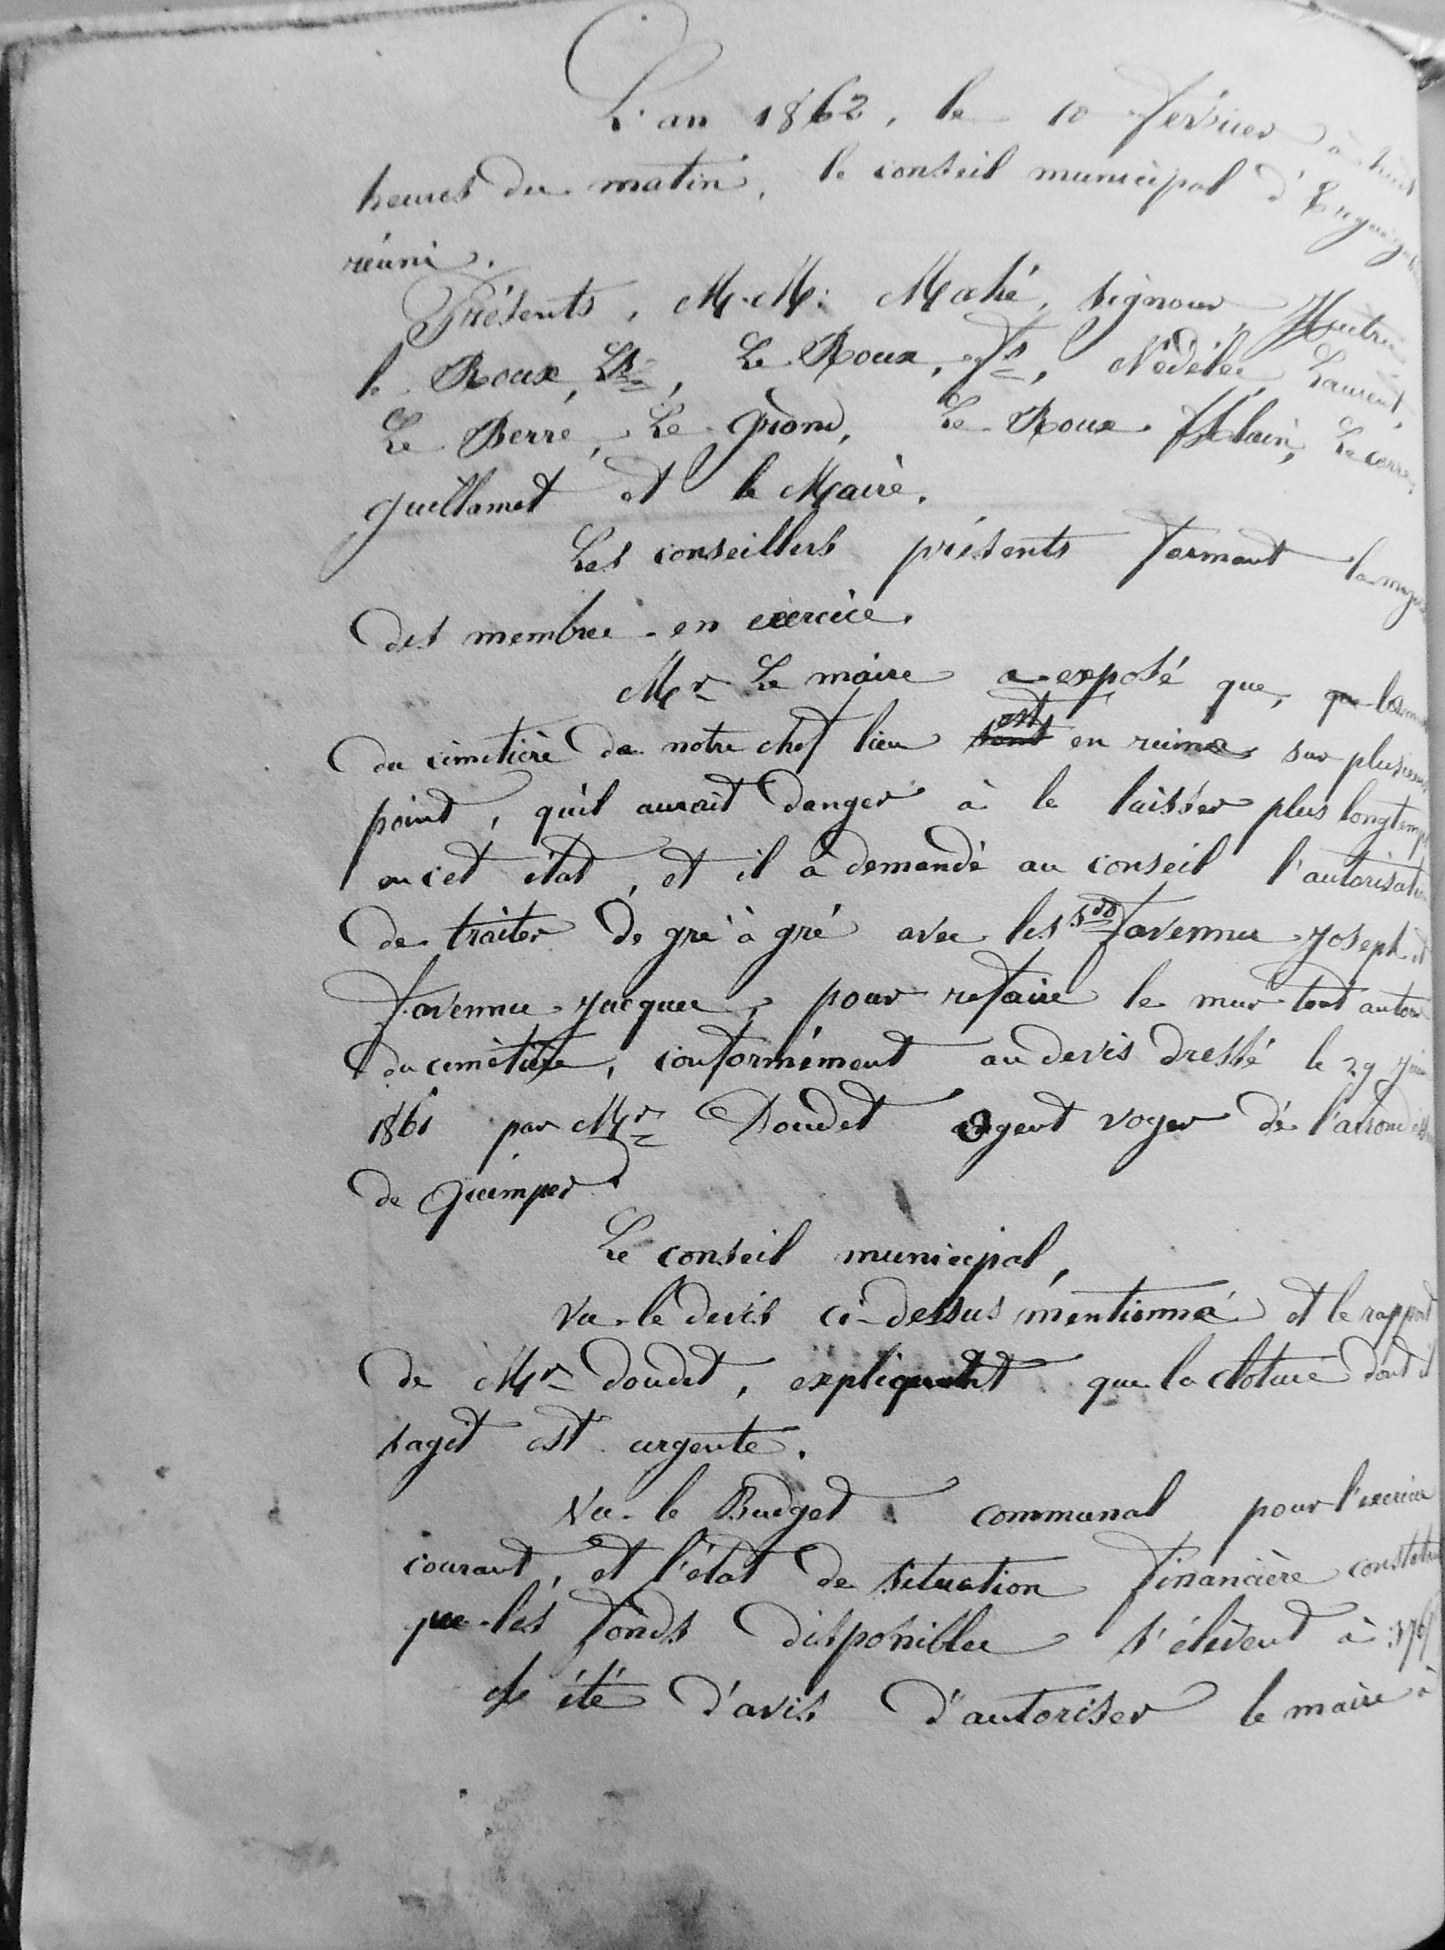 L'an 1862, le 10 février à huit
heures du matin, le conseil municipal d'Ergué-ga
réuni.
Présents, M.M. Mahé, Signour,
le Roux, Ls, Le Roux, fs, Nédélec, Laurent,
Le Berre, Le Grand, Le Roux Alain, Le Cerre,
guillamet et le Maire.
Les conseillers présents formant la majo
des membres en exercice.
Mr Le maire a exposé que, que
du cimetière de notre chef lieu sont est en ruine sur plusieurs
point, qu'il aurait danger à le laisser plus longtemps
en cet état, et il a demandé au conseil l'autorisati
de traiter de gré à gré avec les srs favennec Joseph et
favennec Jacques, pour refaire le mur tout autour
du cimetière, conformément au devis dressé le 29
1861 par Mr Doudet agent voyer de l'arrondiss
de Quimper.
Le conseil municipal,
Vu le devis ci-dessus mentionné et le rapport
de Mr doudet, expliquant que la cloture dont il
sagit est urgente.
Vu le Budget communal pour l'exercice
courant, et l'état de situation financière constatant
que les fonds disponibles s'élèvent à
été d'avis d'autoriser le maire à